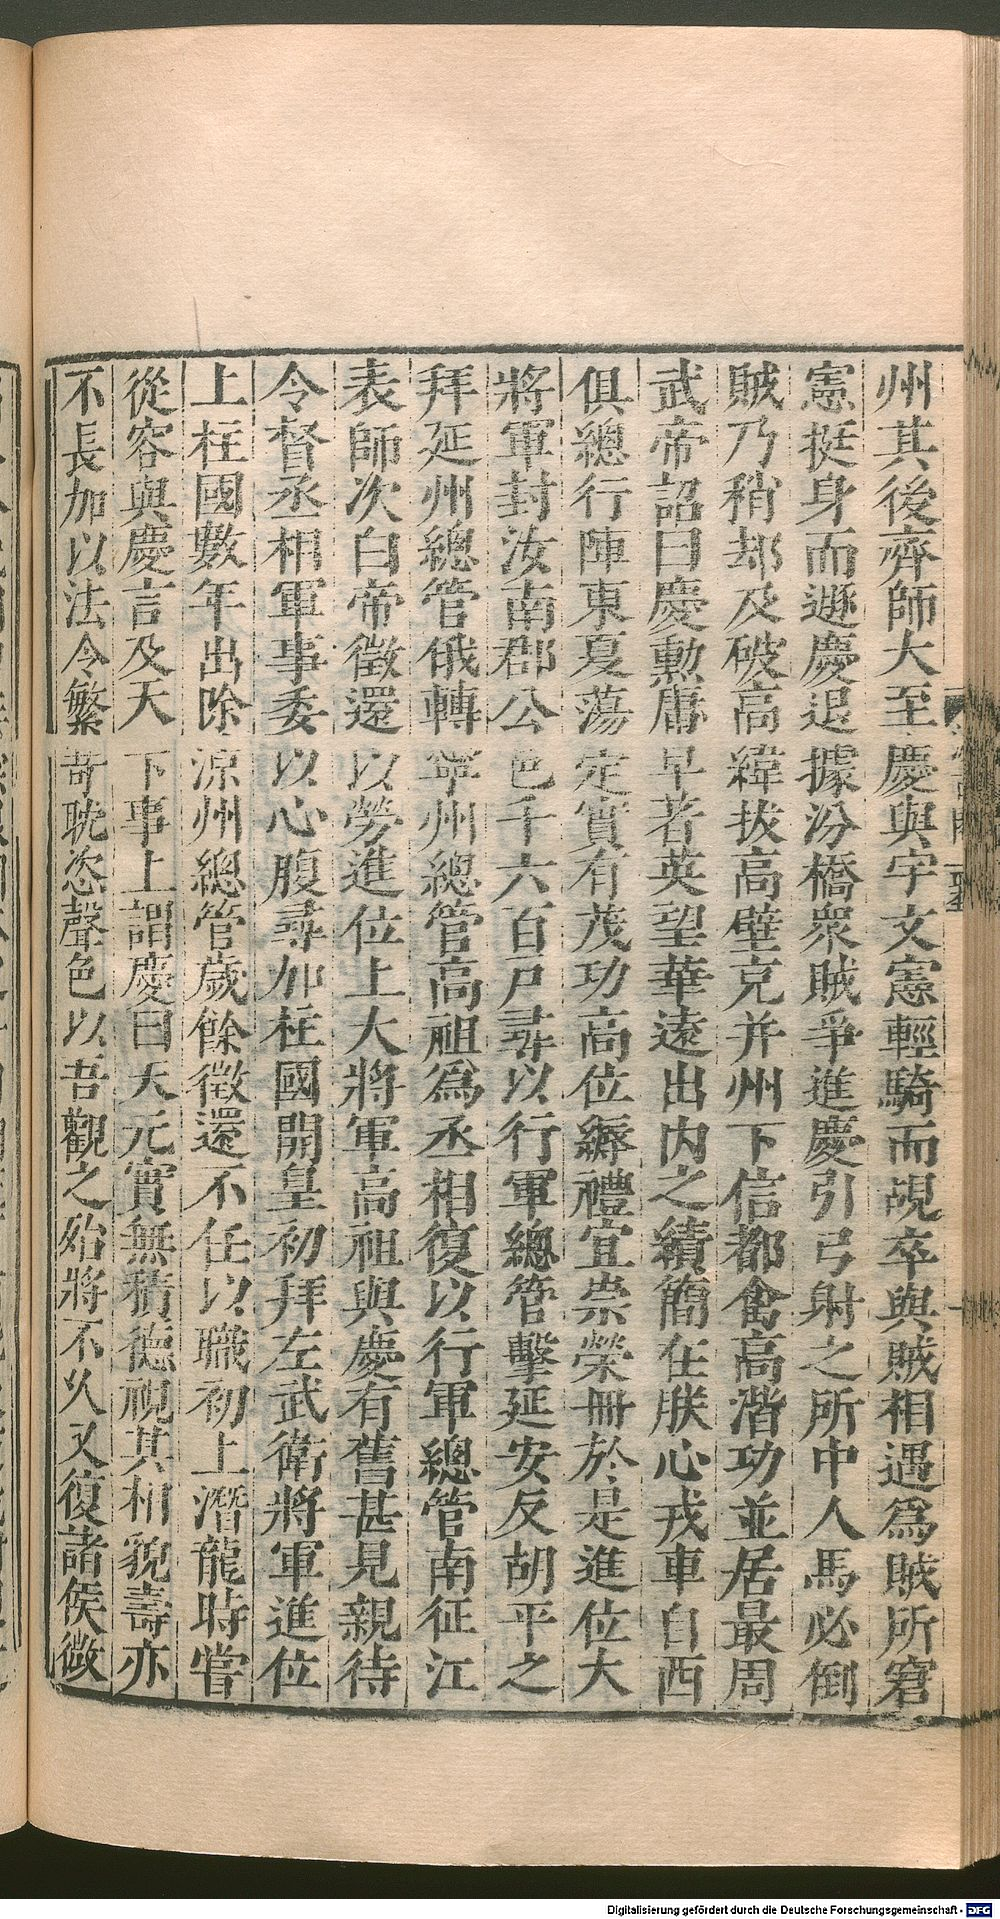 州其後齊師大至慶與宇文憲輕騎而覘卒與賊相遇爲賊所窘
憲挺身而遯慶退據汾橋衆賊爭進慶引弓射之所中人馬必倒
賊乃稍却及破高緯拔高壁克并州下信都禽高湝功並居最周
武帝詔曰慶勲庸早著英望華遠出内之績簡在朕心戎車自西
俱總行陣東夏蕩定實有茂功高位縟禮宜崇榮冊於是進位大
將軍封汝南郡公邑千六百戸尋以行軍總管擊延安反胡平之
拜延州總管俄轉寧州總管高祖爲丞相復以行軍總管南征江
表師次白帝徵還以勞進位上大將軍高祖與慶有舊甚見親待
令督丞相軍事委以心腹尋加柱國開皇初拜左武衛將軍進位
上柱國數年出除涼州總管歲餘徵還不任以職初上潛龍時嘗
從容與慶言及天下事上謂慶曰天元實無積德視其相貌壽亦
不長加以法令繁苛耽恣聲色以吾觀之殆將不久又復諸侯微
Digitalisierung gefördert durch die Deutsche Forschungsgemeinschaft - DFG